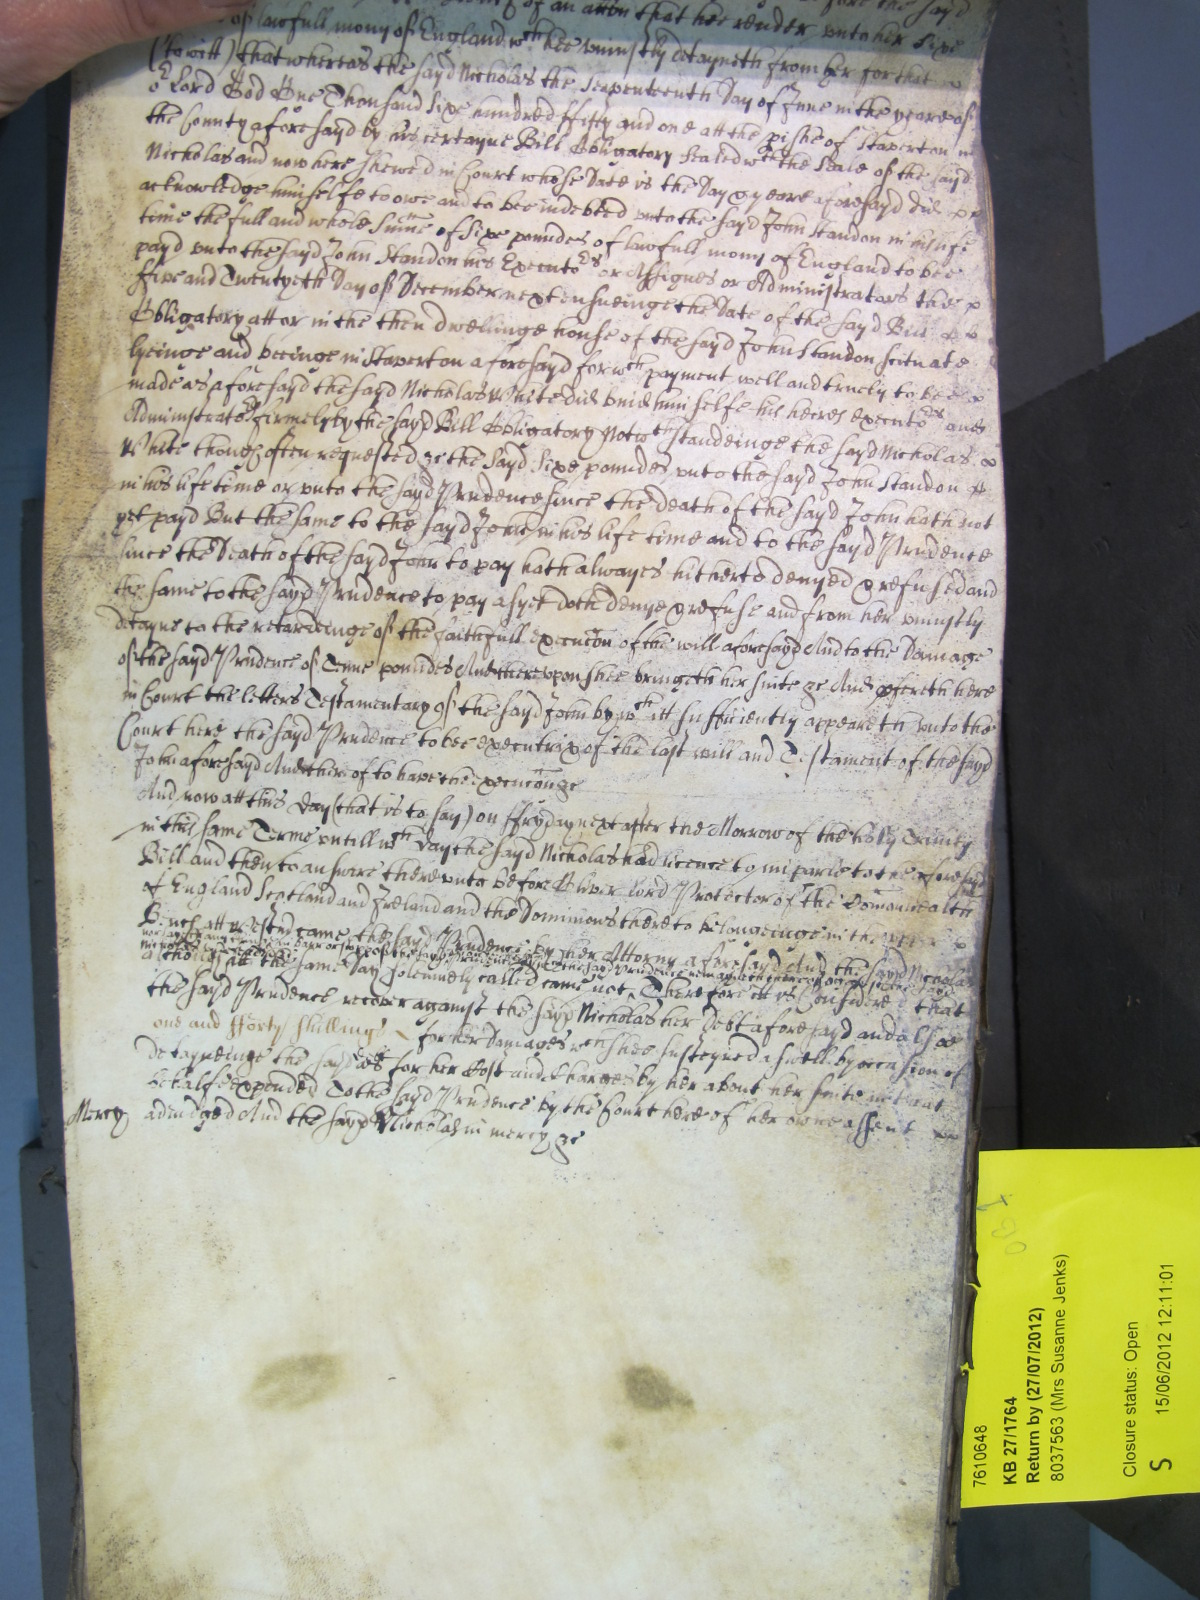 of an accon that hee render unto her Sixe
of lawfull mony of England wch hee uniustly detayneth from her for that
(to witt) that whereas the sayd Nicholas the Seaventeenth Day of June in the yeare of
o Lord God One Thousand Sixe hundred ffifty and one att the pishe of Staverton in
the County aforesayd by his certayne Bill Obligatory Sealed wth the Seale of the sayd
Nicholas and now here shewed in Court whose Date is the Day & yeare aforesayd did
acknowledge himselfe to owe and to bee indebted unto the sayd John Standon in his life
time the full and whole Sume of Sixe poundes of lawfull mony of England to bee
payd unto the sayd John Standon his Executors or Assignes or Administrators the
ffive and Twentyeth Day of December next ensueinge the Date of the sayd Bill
Obligatory att or in the then dwellinge house of the sayd John Standon scituate
lyeinge and beeinge in Staverton aforesayd for wch payment well and truely to bee
made as aforesayd the sayd Nicholas White did binde himselfe his heires executors and
Administrators firmely by the sayd Bill Obligatory Notwthstandeinge the sayd Nicholas
White though often requested &c the sayd Sixe poundes unto the sayd John Standon
in his life time or unto the sayd Prudence since the death of the sayd John hath not
yet payd But the same to the sayd John in his life time and to the sayd Prudence
since the Death of the sayd John to pay hath alwayes hitherto denyed & refused and
the same to the sayd Prudence to pay as yet doth denye & refuse and from her uniustly
detayne to the retardeinge of the faithfull execucon of the will aforesayd And to the Damage
of the sayd Prudence of Tenne poundes And thereupon shee bringeth her suite &c And pfereth here
in Court the letters Testamentary of the sayd John by wch itt sufficiently appeareth unto the
Court here the sayd Prudence to bee executrix of the last will and Testament of the sayd
John aforesayd And thereof to have the execucon &c
And now att this day (that is to say) on ffryday next after the Morrow of the holy Trinity
in this same Terme untill wch day the sayd Nicholas had licence to imparle to the aforesayd
Bill and then to answere thereunto before Oliver lord Protector of the Comonwealth
of England Scotland and Ireland and the Dominions thereto belongeinge in the upper
Bench att Westmr came the sayd Prudence by her Attorny aforesayd And the sayd Nicholas
although att the same day solemnely called came not Therefore itt is Considered that
the sayd Prudence recover against the sayd Nicholas her Debt aforesayd and alsoe
one and fforty shillings for her Damages wch shee susteyned aswell by occasion of
detayneinge the sayd as for her Cost and Charges by her about her suite in that
behalfe expended To the sayd Prudence by the Court here of her owne assent
Mercy adiudged And the sayd Nicholas in mercy &c
7610648
KB 27/1764
Return by (27/07/2012)
8037563 (Mrs Susanne Jenks)
Closure status: Open
S 15/06/2012 12:11:01